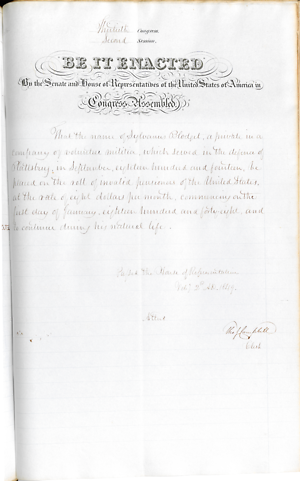 Thirtieth Congress.
Second Session.
BE IT ENACTED
By the Senate and House of Representatives of the United States of America in
Congress Assembled
That the name of Sylvanus Blodget, a private in a
company of volunteer militia, which served in the defence of
Plattsburg, in September, eighteen hundred and fourteen, be
placed on the roll of invalid pensioners of the United States,
at the rate of eight dollars per month, commencing on the
first day of January, eighteen hundred and forty-eight, and
to continue during his natural life.
Passed the House of Representatives
Attest
Tho. J. Campbell
Clerk